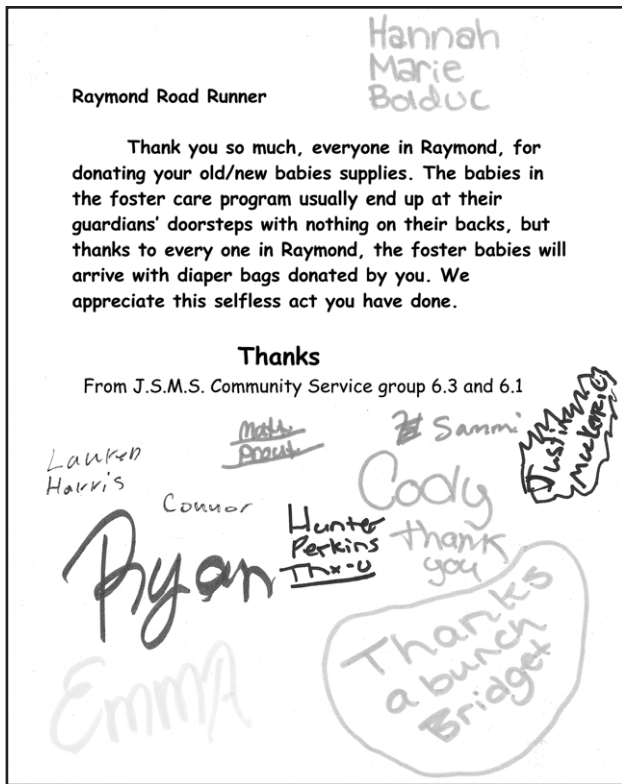 Hannah
Marie
Bolduc
Raymond Road Runner
Thank you so much, everyone in Raymond, for
donating your old/new babies supplies. The babies in
the foster care program usually end up at their
guardians' doorsteps with nothing on their backs, but
thanks to every one in Raymond, the foster babies will
arrive with diaper bags donated by you. We
appreciate this selfless act you have done.
Thanks
From J.S.M.S. Community Service group 6.3 and 6.1
Matt
Sammi
Justin
Lauren
Harris
Connor
Cody
thank
you
Hunter
Perkins
Thx-U
Ryan
Thanks
a bunch
Bridget
Emma